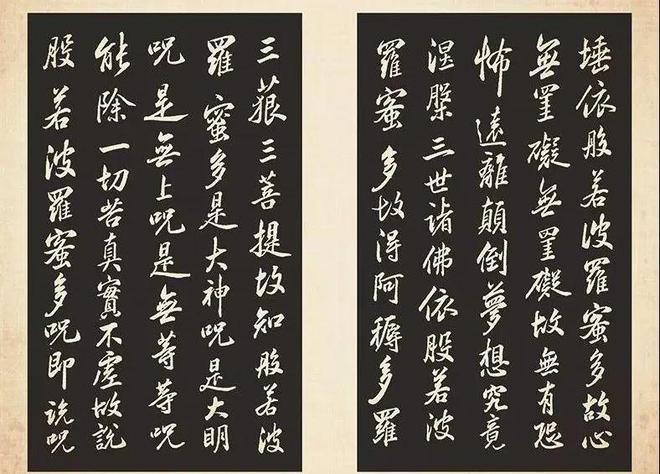 埵依般若波羅蜜多故心
無罣礙無罣礙故無有恐
怖遠離顛倒夢想究竟
涅槃三世諸佛依般若波
羅蜜多故得阿耨多羅
三藐三菩提故知般若波
羅蜜多是大神呪是大明
呪是無上呪是無等等呪
能除一切苦真實不虛故說
般若波羅蜜多呪即說呪